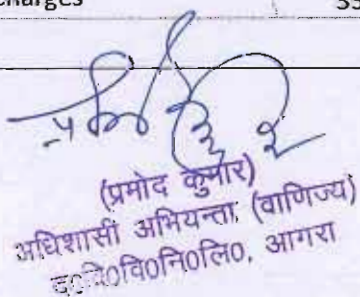 Charges
(प्रमोद कुमार)
अधिशासी अभियन्ता, (वाणिज्य)
द०वि०वि०नि०लि०, आगरा